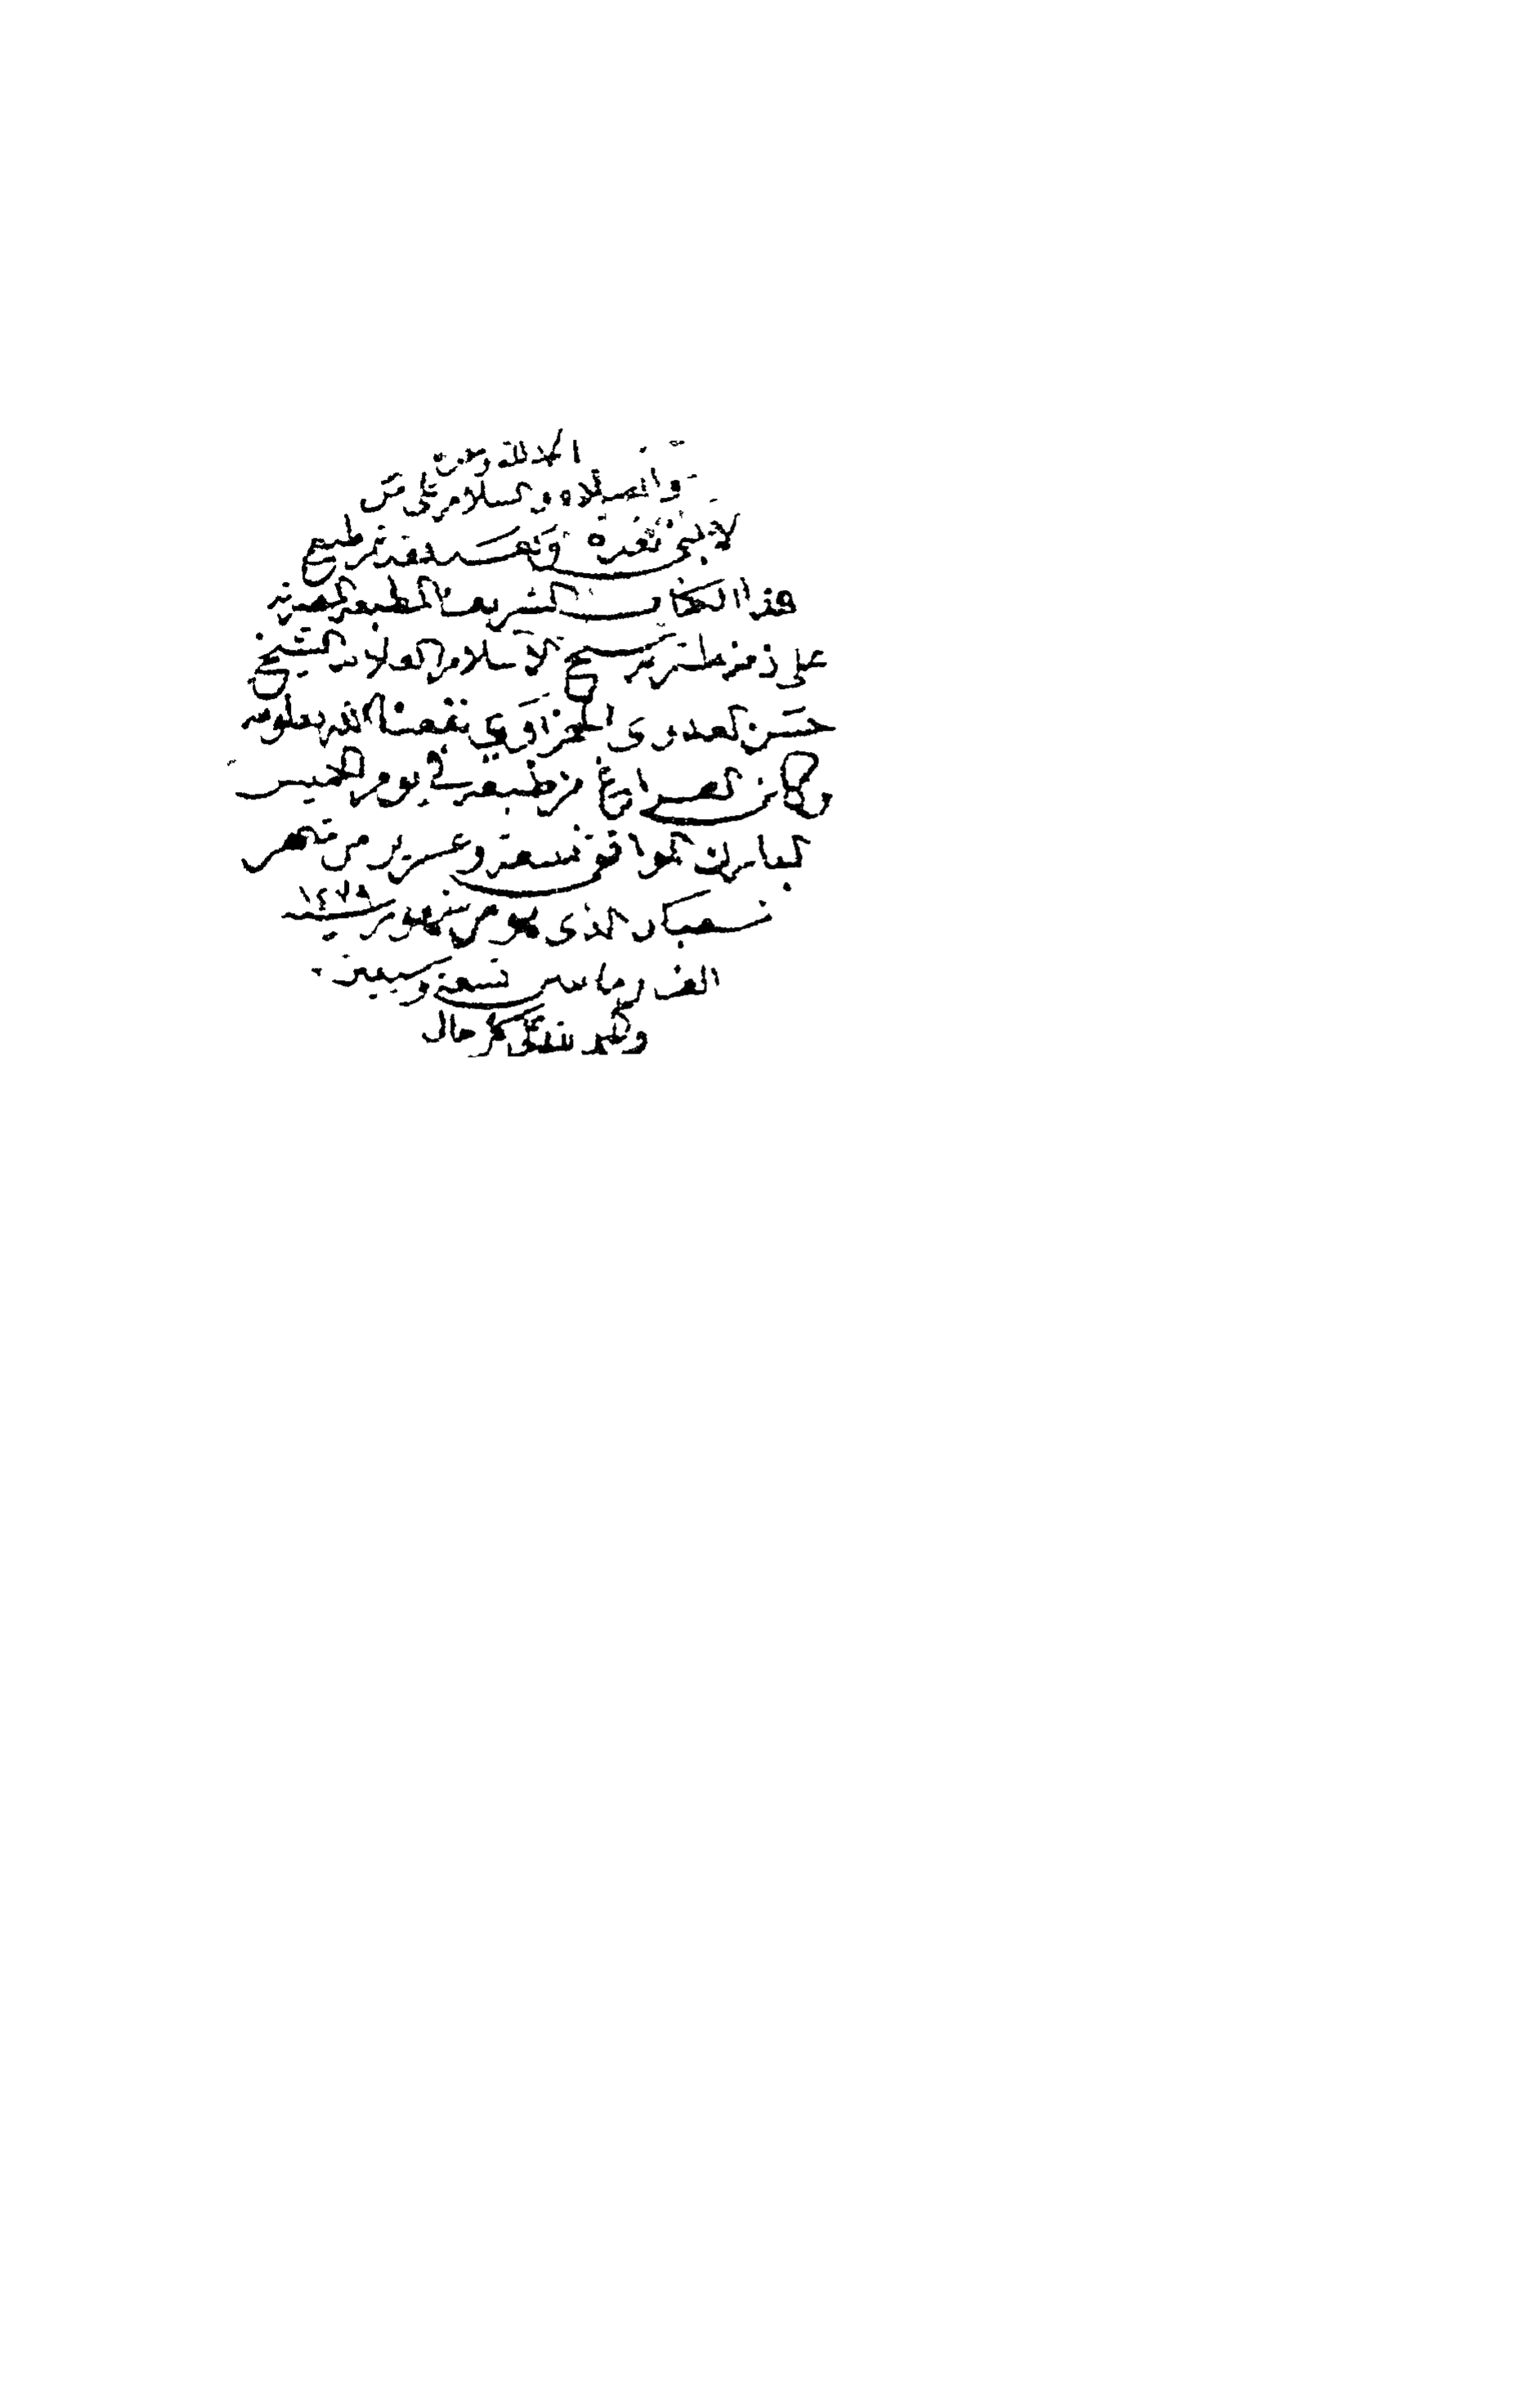 الحمد لله وحده
والصلاة والسلام على من
لا نبي بعده وبعد فقد تم طبع
هذا الكتاب الشريف بالمطبعة المصرية
على ذمة ملتزمه شيخ الاسلام العلامة الشيخ
حسن العدوى الحمزاوي نفعنا الله بعلومه
وكان الفراغ من طبعه في يوم الخميس
المبارك الموافق تسعة وعشرين من شهر
شعبان الذى هو من شهور سنة ١٢٧٩
الف ومائتين تسعة وسبعين
والحمد لله على كل حال